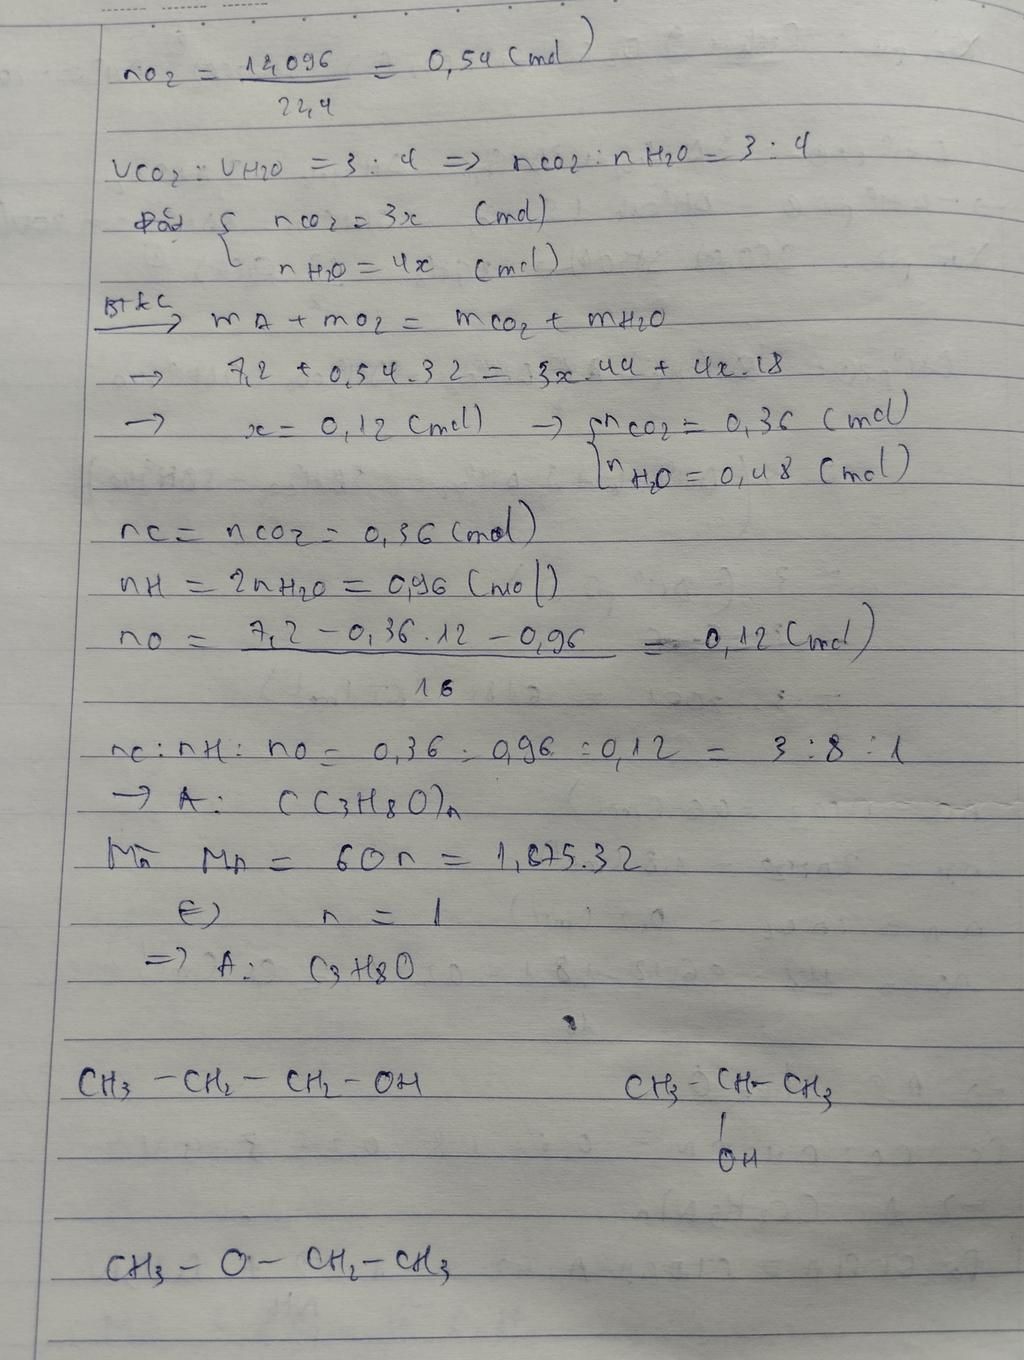 nO2 = 12,096 / 22,4 = 0,54 (mol)
VCO2 : VH2O = 3 : 4 => nCO2 : nH2O = 3 : 4
Đặt { nCO2 = 3x (mol)
nH2O = 4x (mol)
BTKL → mA + mO2 = mCO2 + mH2O
→ 7,2 + 0,54.32 = 3x.44 + 4x.18
→ x = 0,12 (mol) → { nCO2 = 0,36 (mol)
nH2O = 0,48 (mol)
nC = nCO2 = 0,36 (mol)
nH = 2nH2O = 0,96 (mol)
nO = 7,2 - 0,36.12 - 0,96 / 16 = 0,12 (mol)
nC : nH : nO = 0,36 : 0,96 : 0,12 = 3 : 8 : 1
→ A: (C3H8O)n
Mà MA = 60n = 1,875.32
(=) n = 1
=> A: C3H8O
CH3 - CH2 - CH2 - OH CH3 - CH - CH3
OH
CH3 - O - CH2 - CH3